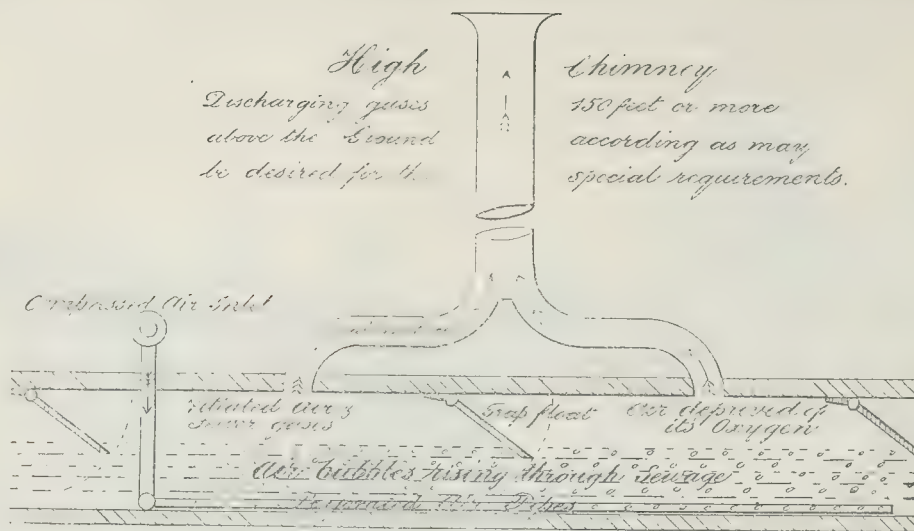 High Chimney
Discharging gases 150 feet or more
above the Ground according as may
be desired for the special requirements.
Compressed Air Inlet
Vitiated Air &
Sewer gases
Trap float
Air deprived of
its Oxygen
Air bubbles rising through Sewage
Air Pipes